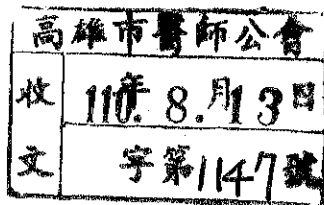 高雄市醫師公會
收文
110年 8.月13日
字第1147號